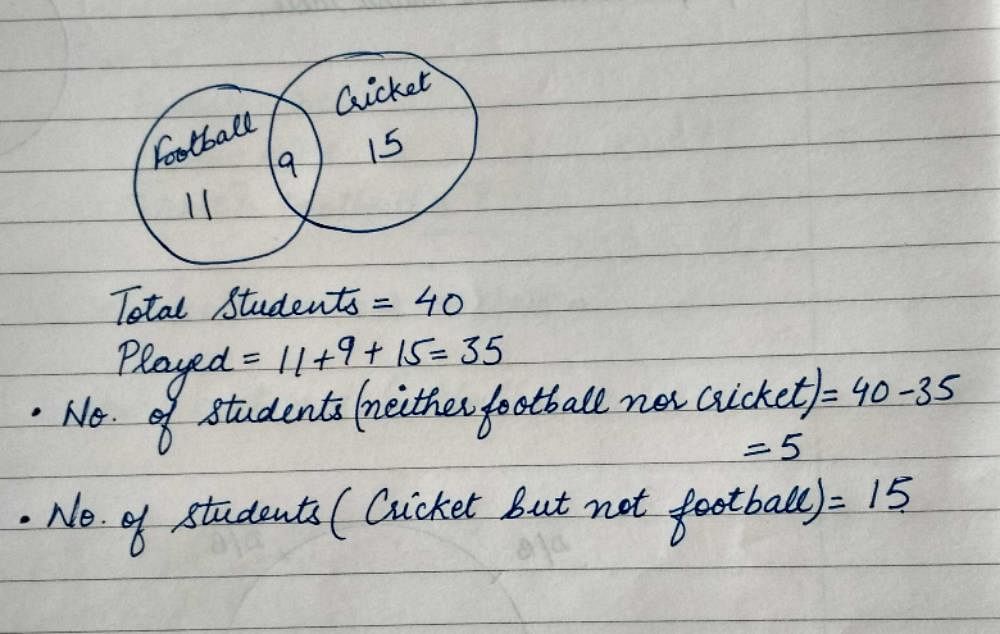 Cricket
Football
15
9
11
Total Students = 40
Played = 11+9+15=35
• No. of students (neither football nor cricket) = 40-35
= 5
• No. of students ( Cricket but not football) = 15